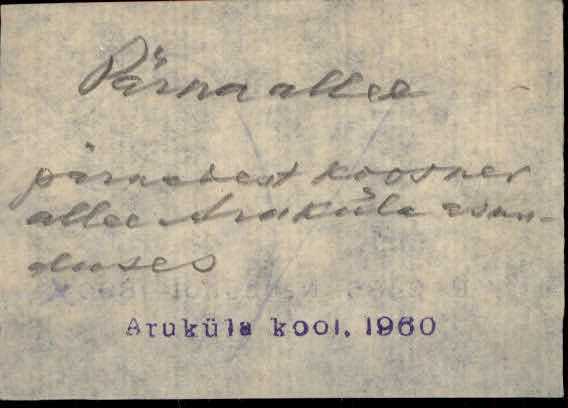 Pärna allee
pärnadest koosnev
allee Aruküla asun-
duses
Aruküla kool. 1960